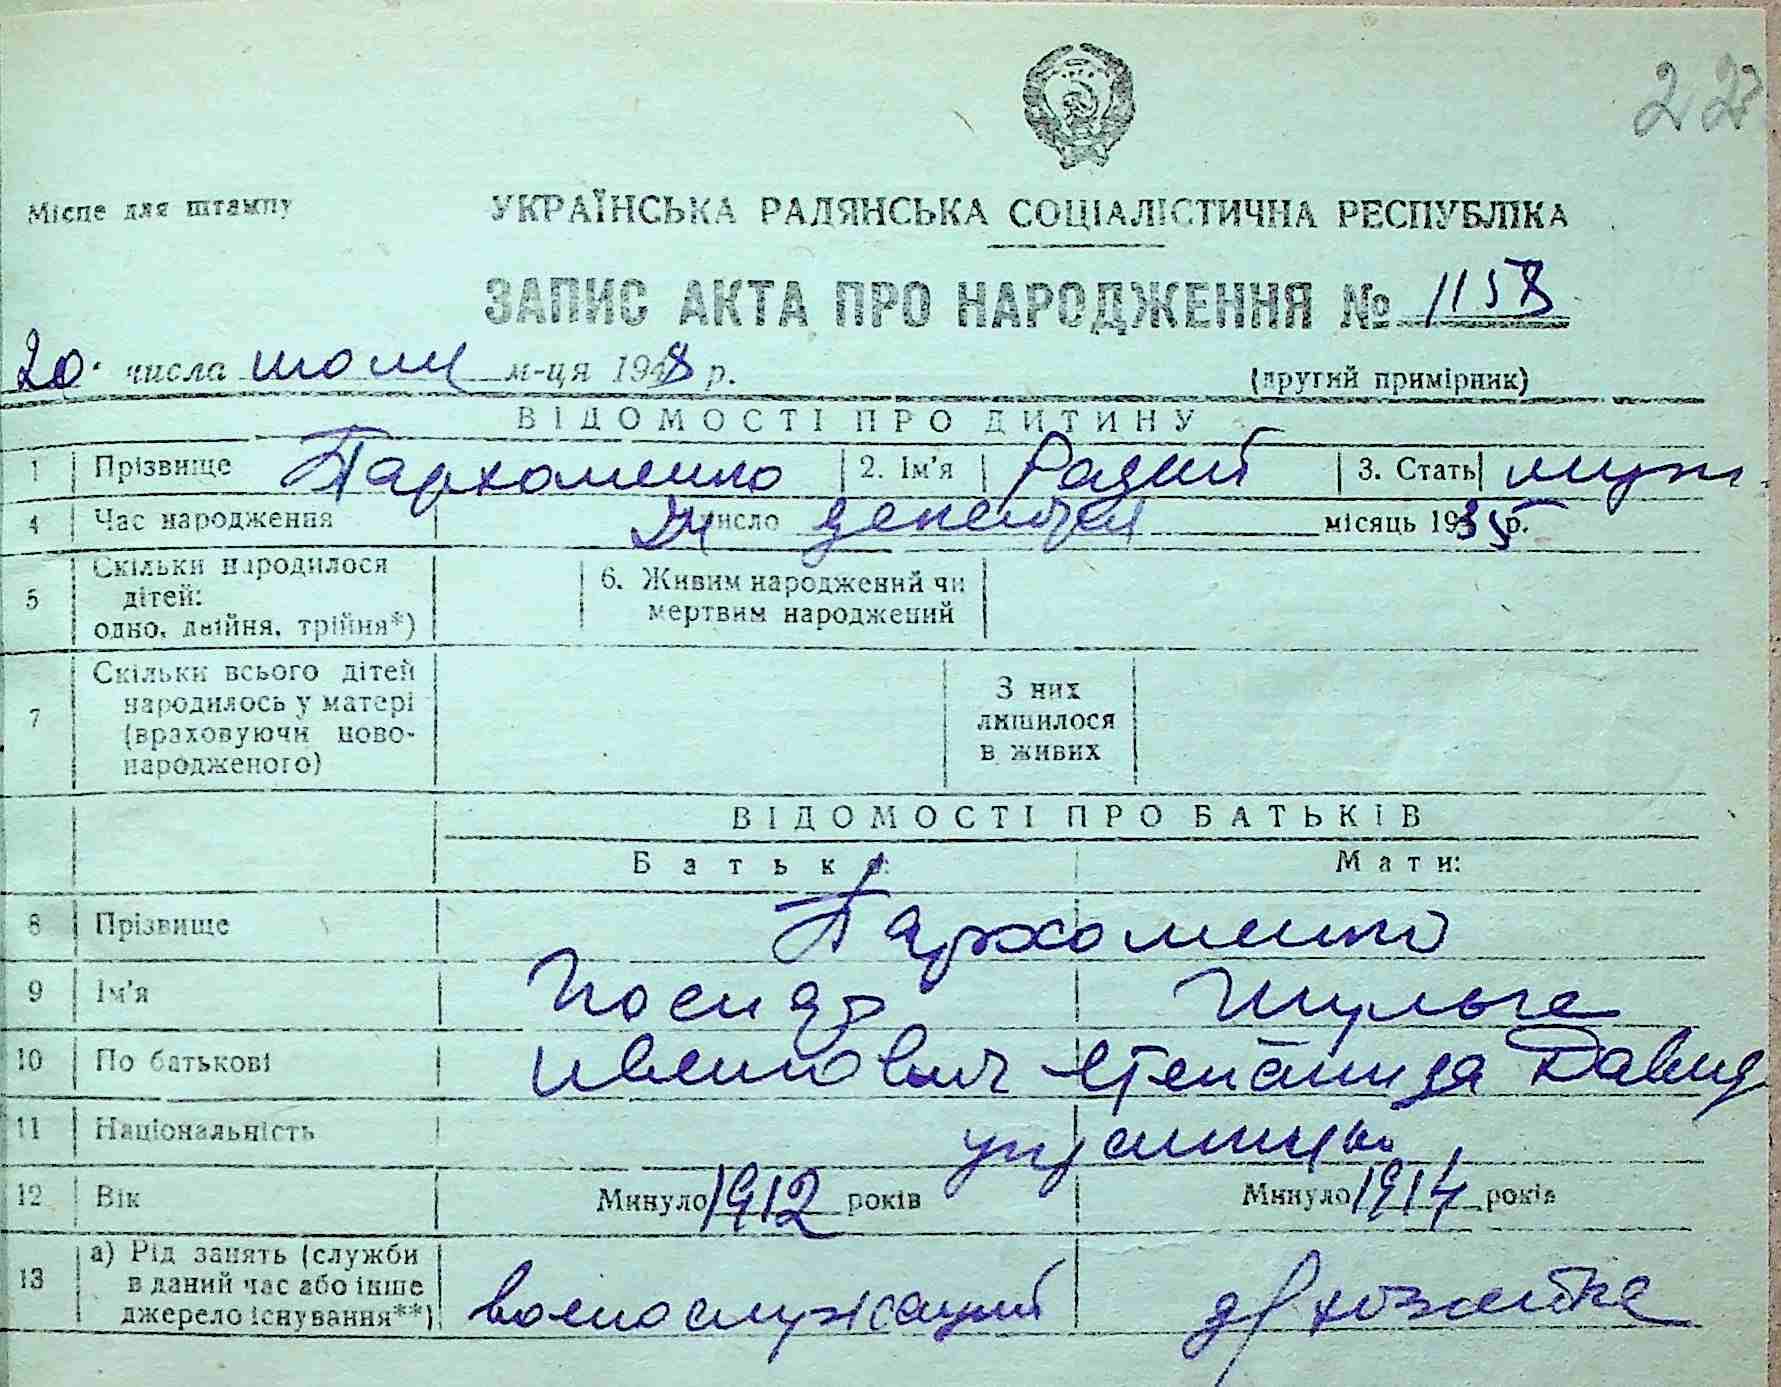 22
Місце для штампу
УКРАЇНСЬКА РАДЯНСЬКА СОЦІАЛІСТИЧНА РЕСПУБЛІКА
ЗАПИС АКТА ПРО НАРОДЖЕННЯ № 1158
20. числа июли м-ця 1948 р.
(другий примірник)
ВІДОМОСТІ ПРО ДИТИНУ
1 Прізвище Пархоменко 2. Ім'я Радий 3. Стать муж.
4 Час народження 24 число декабря місяць 1935 р.
5 Скільки народилося
дітей:
одно, двійня, трійня*)
6. Живим народжений чи
мертвим народжений
7 Скільки всього дітей
народилось у матері
(враховуючи ново-
народженого)
З них
лишилося
в живих
ВІДОМОСТІ ПРО БАТЬКІВ
Батько: Мати:
8 Прізвище Пархоменко
9 Ім'я Шульга
10 По батькові Иванович Степанида Давид
11 Національність украинцы
12 Вік Минуло 1912 років Минуло 1914 років
13 а) Рід занять (служби
в даний час або інше
джерело існування**) военослужащий д/хозяйка